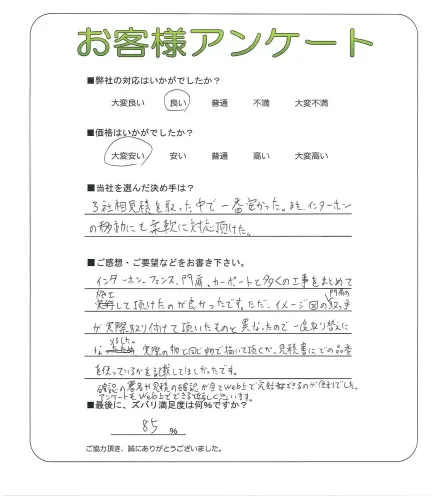 お客様アンケート
■弊社の対応はいかがでしたか？
大変良い 良い 普通 不満 大変不満
■価格はいかがでしたか？
大変安い 安い 普通 高い 大変高い
■当社を選んだ決め手は？
3社相見積を取った中で一番安かった。また、インターホン
の移動にも柔軟に対応頂けた。
■ご感想・ご要望などをお書き下さい。
インターホン、フェンス、門扉、カーポートと多くの工事をまとめて
施工して頂けたのが良かったです。ただ、イメージ図の門扉の取手
が実際取り付けて頂いたものと異なったので一度取り替えに
なりました。実際の物と同じ物で描いて頂くか、見積書にどの品番
を使っているかを記載してほしかったです。
確認の署名や見積の確認が全てWeb上で完結できるのが便利でした。
アンケートもWeb上でできると嬉しく思います。
■最後に、ズバリ満足度は何％ですか？
85 ％
ご協力頂き、誠にありがとうございました。